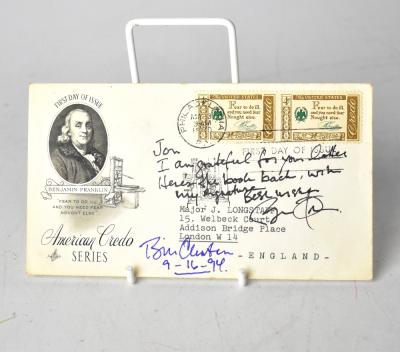 FIRST DAY OF ISSUE
BENJAMIN FRANKLIN
"FEAR TO DO ILL
AND YOU NEED FEAR
NOUGHT ELSE"
American Credo
SERIES
PHILADELPHIA
UNITED STATES
Fear to do ill,
and you need fear
Nought else.
UNITED STATES
Fear to do ill,
and you need fear
Nought else.
FIRST DAY OF
I am grateful for your letter
Here's the book back, with
my signature
Best wishes
Major J. LONGSTAFF
15, Welbeck Court
Addison Bridge Place
London W 14
- ENGLAND -
Bill Clinton
9-16-94.